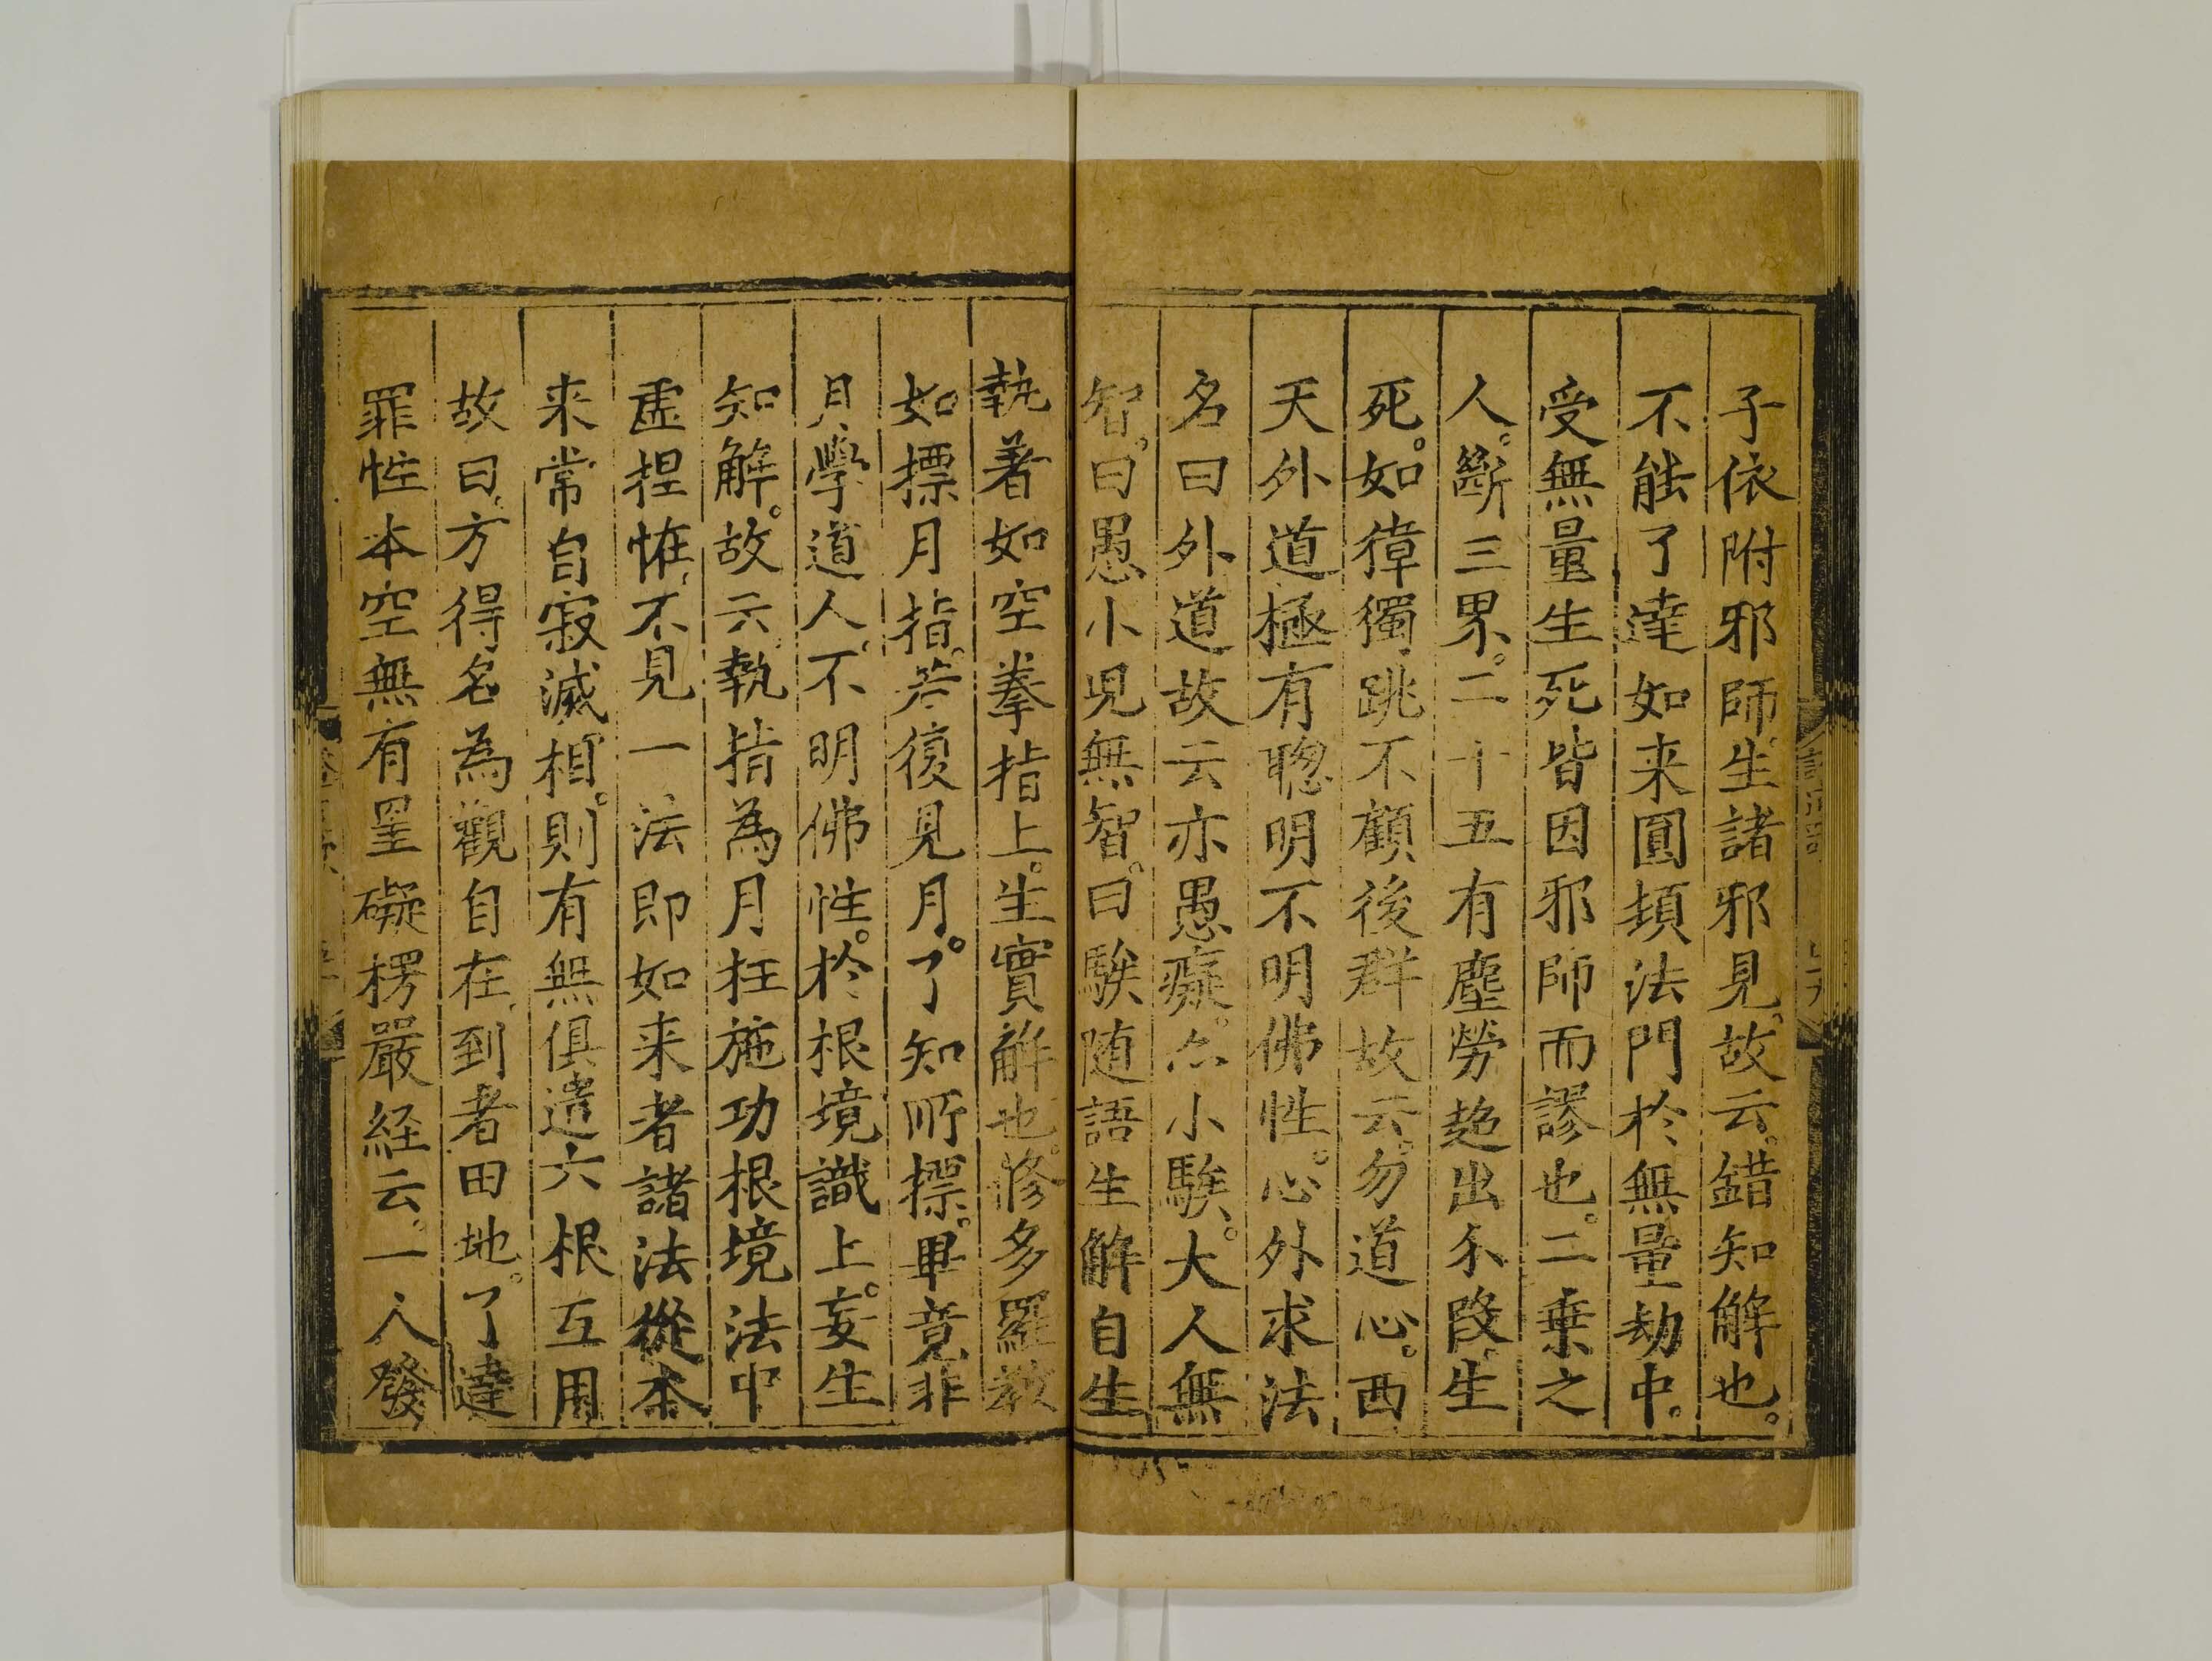 子依附邪師生諸邪見故云。錯知解也。
不能了達如来圓頓法門於無量劫中。
受無量生死皆因邪師而謬也。二乗之
人。斷三界。二十五有塵勞超出分段生
死。如獐獨跳不顧後群故云。勿道心。西
天外道極有聡明不明佛性。心外求法
名曰外道故云亦愚癡。亦小騃。大人無
智。曰愚小児無智。曰騃随語生解自生
執著如空拳指上。生實解也。修多羅教
如摽月指。若復見月。了知所摽。畢竟非
月學道人。不明佛性。於根境識上。妄生
知解。故云執指為月枉施功根境法中
虚捏恠不見一法即如来者諸法從本
来常自寂滅相。則有無俱遣六根互用
故曰方得名為觀自在到者田地。了達
罪性本空無有罣礙楞嚴経云。一人發